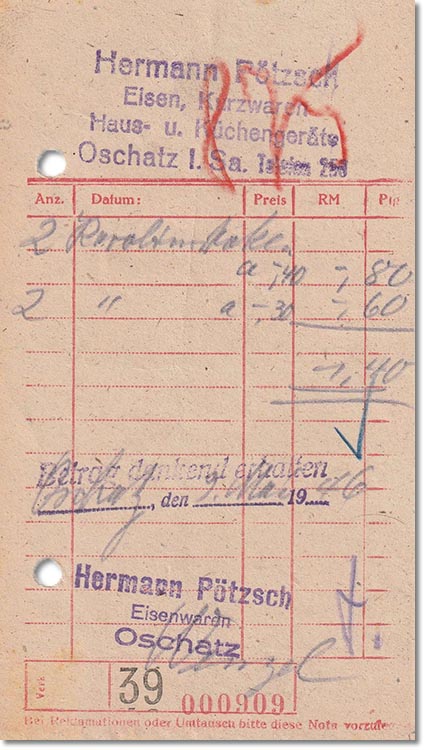 Hermann Pötzsch
Eisen, Kurzwaren
Haus- u. Küchengeräte
Oschatz i. Sa. Telefon 250
Anz. Datum: Preis RM Pfg.
2
a -,40 -,80
2 " a -,30 -,60
1,40
Betrag dankend erhalten
Oschatz, den 9. Mai 1946
Hermann Pötzsch
Eisenwaren
Oschatz
Verk. 39 000909
Bei Reklamationen oder Umtausch bitte diese Nota vorzule